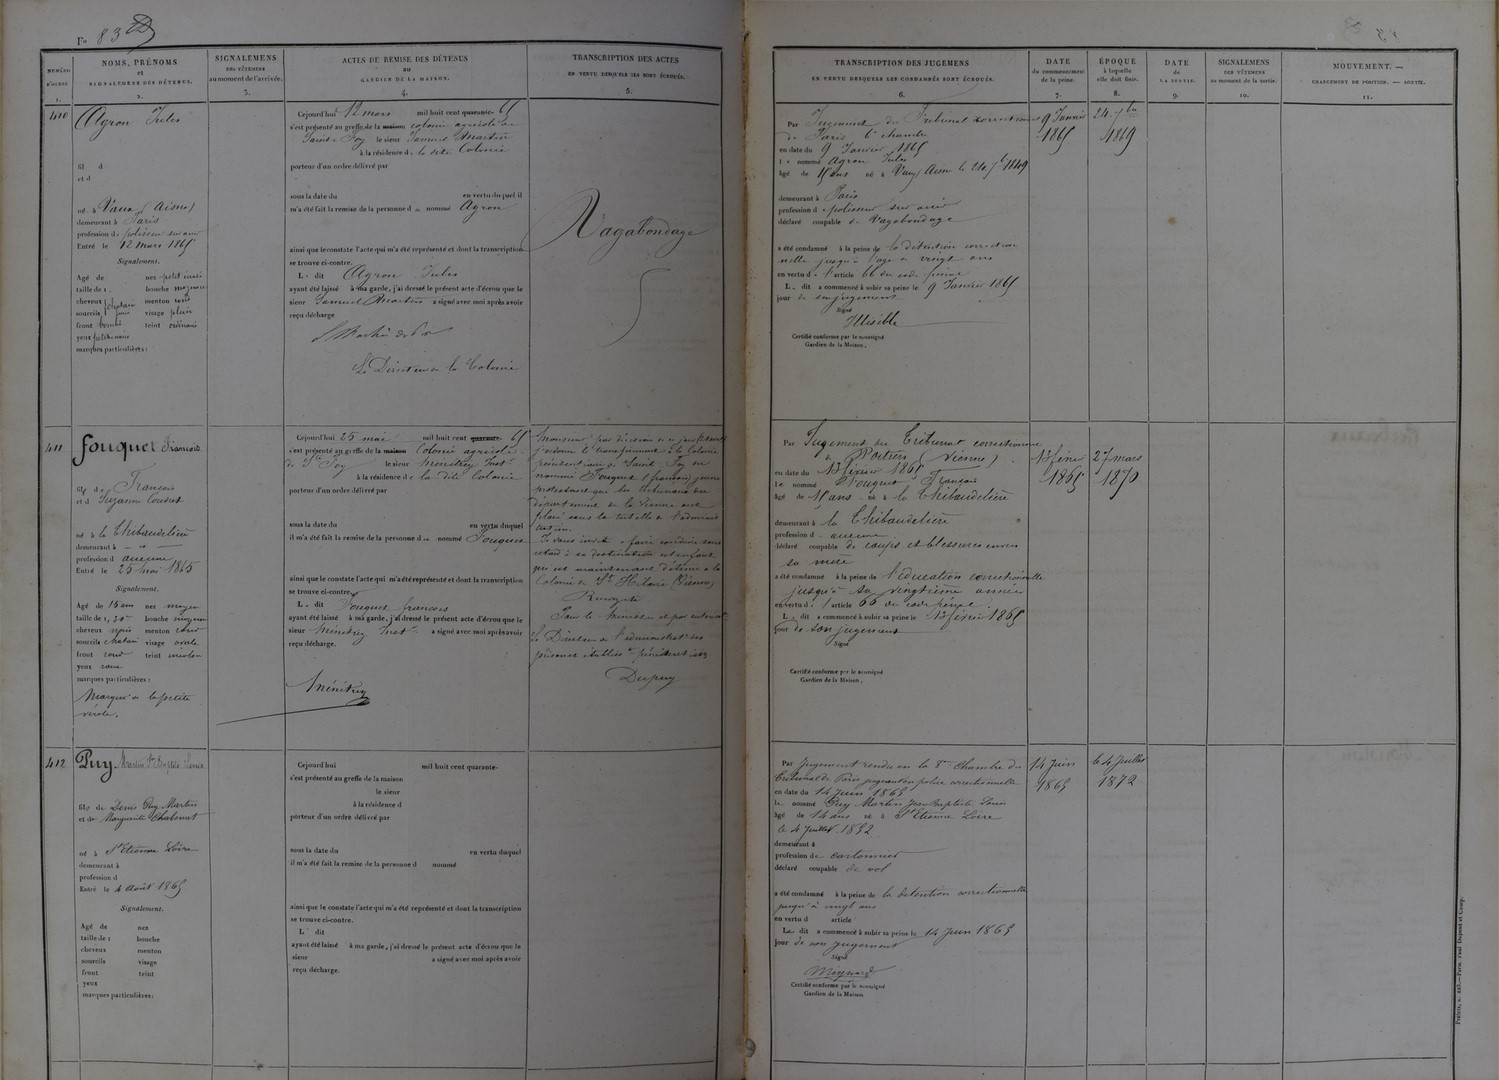 Fo 83
NUMÉRO D'ORDRE 1.
NOMS, PRÉNOMS
et
SIGNALEMENS DES DÉTENUS.
2.
SIGNALEMENS
DES VÊTEMENS
au moment de l'arrivée.
3.
ACTES DE REMISE DES DÉTENUS
AU
GARDIEN DE LA MAISON.
4.
TRANSCRIPTION DES ACTES
EN VERTU DESQUELS ILS SONT ÉCROUÉS.
5.
410
Agron Jules
fil d
et d
né à Vaux (Aisne)
demeurant à Paris
profession de polisseur sur acier
Entré le 12 mars 1865
Signalement.
Agé de nez petit
taille de 1 bouche moyenne
cheveux châtain menton rond
sourcils visage plein
front bombé teint ordinaire
yeux
marques particulières :
Cejourd'hui 12 mars mil huit cent quarante- 65
s'est présenté au greffe de la maison colonie agricole de
Sainte-Foy le sieur Samuel Martin
à la résidence de la dite Colonie
porteur d'un ordre délivré par
sous la date du en vertu duquel il
m'a été fait la remise de la personne d nommé Agron
ainsi que le constate l'acte qui m'a été représenté et dont la transcription
se trouve ci-contre.
L dit Agron Jules
ayant été laissé à ma garde, j'ai dressé le présent acte d'écrou que le
sieur Samuel Martin a signé avec moi après avoir
reçu décharge
Le Directeur de la Colonie
Vagabondage
411
Fouquet François
fils de François
et d Suzanne
né à la Thibaudelière
demeurant à
profession d aucune
Entré le 25 mai 1865
Signalement.
Agé de 15 ans nez moyen
taille de 1, bouche moyenne
cheveux noirs menton rond
sourcils châtain visage ovale
front rond teint
yeux
marques particulières :
Marqué de la petite
vérole.
Cejourd'hui 25 mai mil huit cent quarante- 65
s'est présenté au greffe de la maison Colonie agricole
de Ste Foy le sieur Ménétrey Instr
à la résidence de la dite Colonie
porteur d'un ordre délivré par
sous la date du en vertu duquel
il m'a été fait la remise de la personne d nommé Fouquet
ainsi que le constate l'acte qui m'a été représenté et dont la transcription
se trouve ci-contre.
L dit Fouquet françois
ayant été laissé à ma garde, j'ai dressé le présent acte d'écrou que le
sieur Ménétrey Instr a signé avec moi après avoir
reçu décharge.
Ménétrey
Monsieur, par décision de ce jour
j'ordonne le transfèrement à la Colonie
pénitentiaire de Sainte Foy du
nommé Fouquet (françois) jeune
protestant que les tribunaux du
département de la Vienne ont
placé sous la tutelle de l'adminis
tration.
Je vous invite à faire conduire sans
retard à sa destination cet enfant
qui est maintenant détenu à la
Colonie de St Hilaire (Vienne)
Pour le Ministre et par autorisat
Le Directeur de l'administrat. des
prisons et établiss. pénitentiaires
Dupuy
412
Puy Martin Jn Baptiste Louis
fils de Denis Puy Martin
et de Marguerite Chabanat
né à St Etienne Loire
demeurant à
profession d
Entré le 4 Août 1865
Signalement.
Agé de nez
taille de 1 bouche
cheveux menton
sourcils visage
front teint
yeux
marques particulières :
Cejourd'hui mil huit cent quarante-
s'est présenté au greffe de la maison
le sieur
à la résidence d
porteur d'un ordre délivré par
sous la date du en vertu duquel
il m'a été fait la remise de la personne d nommé
ainsi que le constate l'acte qui m'a été représenté et dont la transcription
se trouve ci-contre.
L dit
ayant été laissé à ma garde, j'ai dressé le présent acte d'écrou que le
sieur a signé avec moi après avoir
reçu décharge.
TRANSCRIPTION DES JUGEMENS
EN VERTU DESQUELS LES CONDAMNÉS SONT ÉCROUÉS.
6.
DATE
du commencement
de la peine.
7.
ÉPOQUE
à laquelle
elle doit finir.
8.
DATE
de
LA SORTIE.
9.
SIGNALEMENS
DES VÊTEMENS
au moment de la sortie.
10.
MOUVEMENT. —
CHANGEMENT DE POSITION. — SORTIE.
11.
Par Jugement du Tribunal correctionnel
de Paris 6e chambre
en date du 9 Janvier 1865
le nommé Agron Jules
âgé de 15 ans né à Vaux Aisne le 24 7bre 1849
demeurant à Paris
profession de polisseur sur acier
déclaré coupable de Vagabondage
a été condamné à la peine de la détention correction
nelle jusqu'à l'âge de vingt ans
en vertu de l'article 66 du code pénal
L dit a commencé à subir sa peine le 9 Janvier 1865
jour de son jugement
Signé
Illisible
Certifié conforme par le soussigné
Gardien de la Maison.
9 Janvier
1865
24 7bre
1869
Par Jugement du Tribunal correctionnel
de Poitiers (Vienne)
en date du 13 février 1865
le nommé Fouquet François
âgé de 15 ans né à la Thibaudelière
demeurant à la Thibaudelière
profession d aucune
déclaré coupable de coups et blessures envers
sa mère
a été condamné à la peine de l'éducation correctionnelle
jusqu'à sa vingtième année
en vertu de l'article 66 du code pénal
L dit a commencé à subir sa peine le 13 février 1865
jour de son jugement
Signé
Certifié conforme par le soussigné
Gardien de la Maison.
13 février
1865
27 mars
1870
Par Jugement rendu en la 8me Chambre du
Tribunal de Paris jugeant en police correctionnelle
en date du 14 Juin 1865
le nommé Puy Martin Jean Baptiste Louis
âgé de 14 ans né à St Etienne Loire
le 4 Juillet 1852
demeurant à
profession de cartonnier
déclaré coupable de vol
a été condamné à la peine de la détention correctionnelle
jusqu'à vingt ans
en vertu d article
Le dit a commencé à subir sa peine le 14 Juin 1865
jour de son jugement
Signé
Meynard
Certifié conforme par le soussigné
Gardien de la Maison
14 Juin
1865
le 4 Juillet
1872